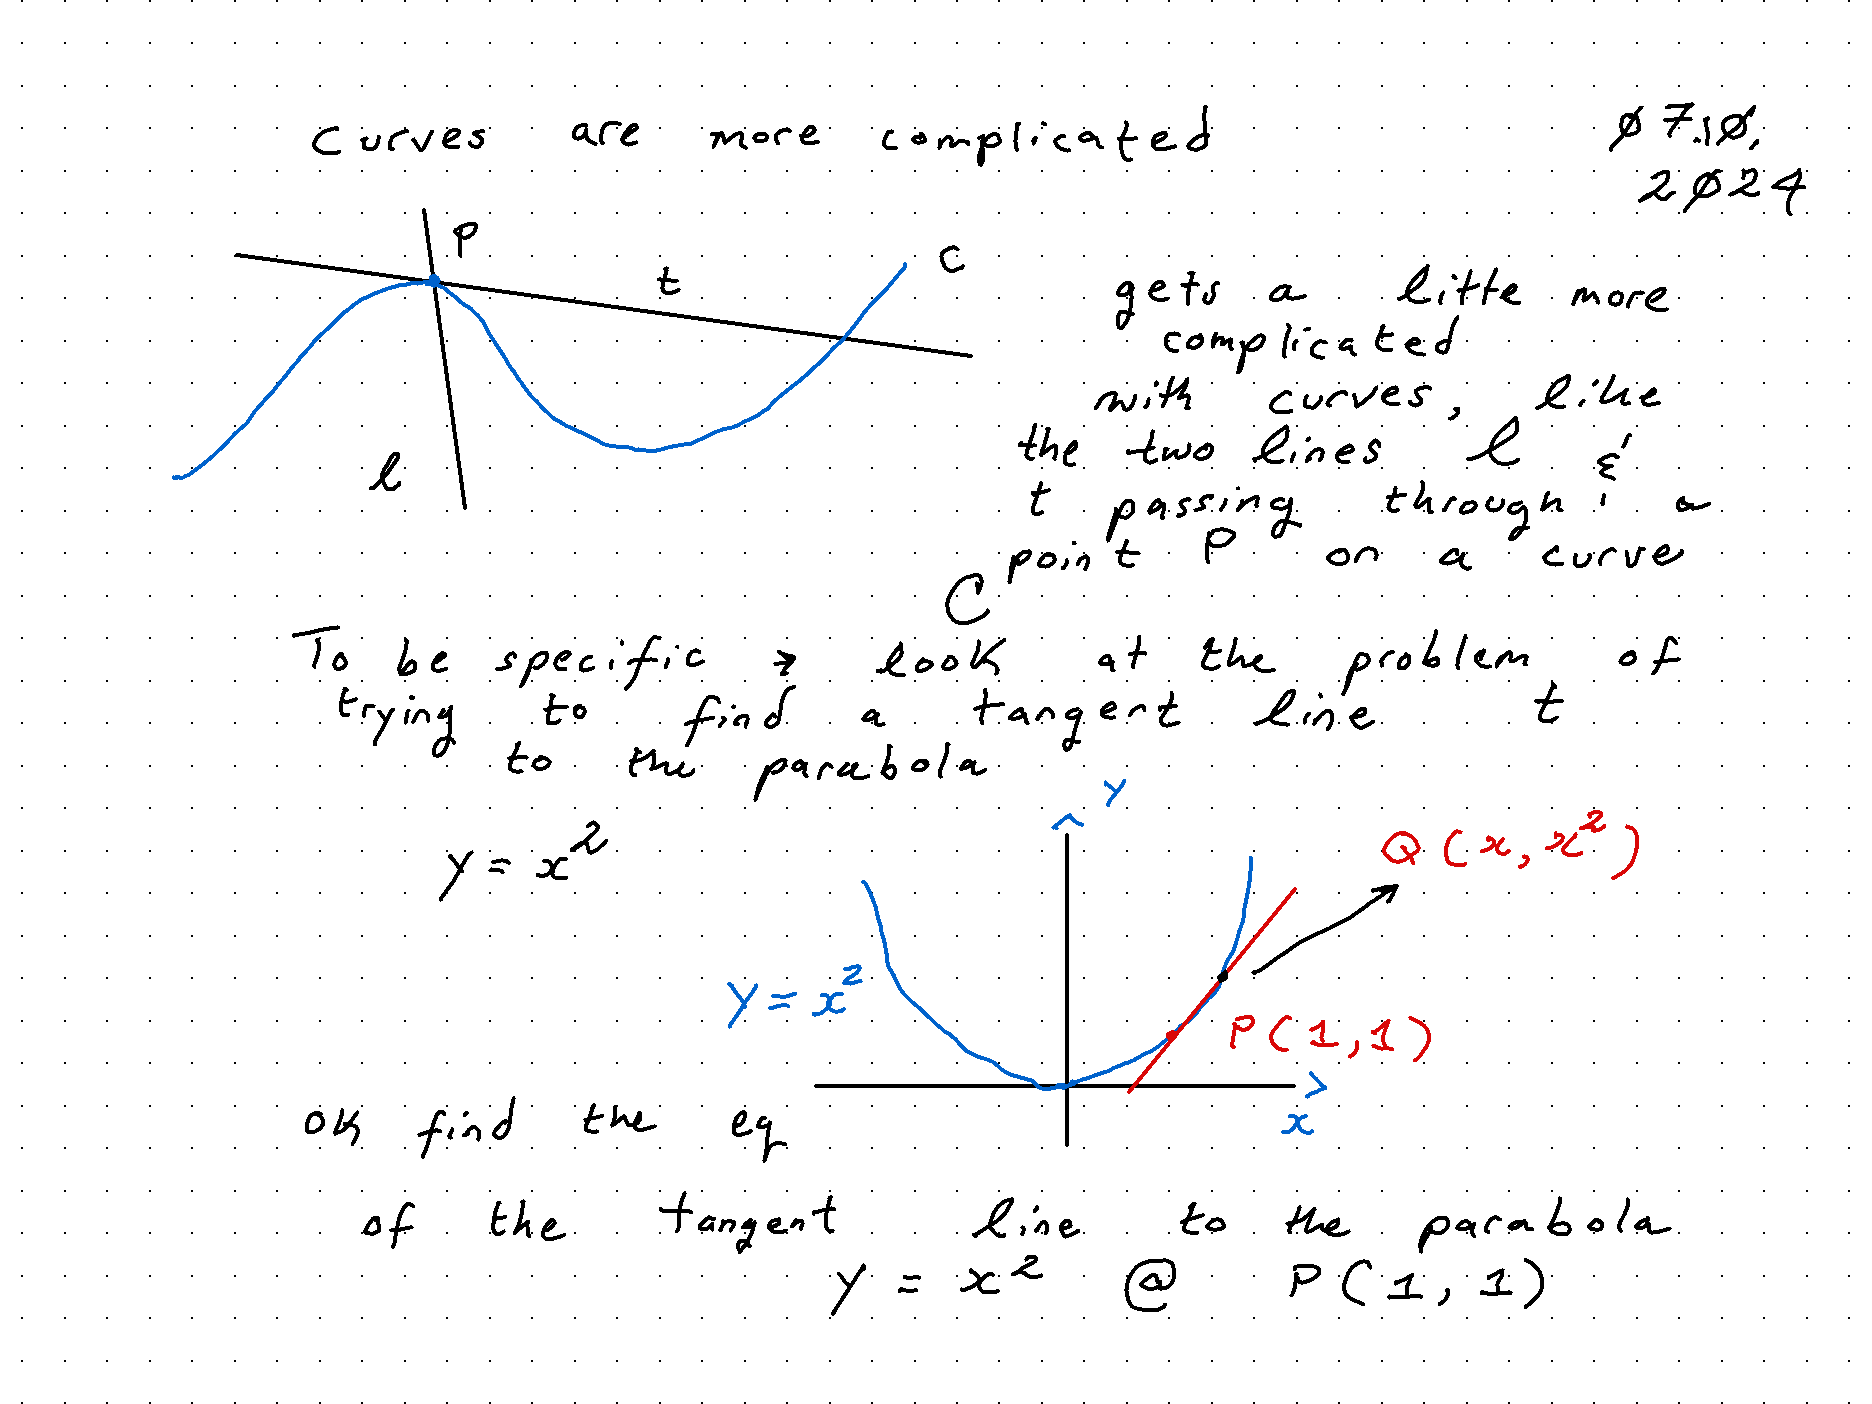 curves are more complicated
ø7.1ø.
2ø24
P
t
C
l
gets a litte more
complicated
with curves, like
the two lines l &
t passing through a
point P on a curve
C
To be specific → look at the problem of
trying to find a tangent line t
to the parabola
y = x²
y
Q(x, x²)
y = x²
P(1,1)
x
ok find the eq
of the tangent line to the parabola
y = x² @ P(1,1)